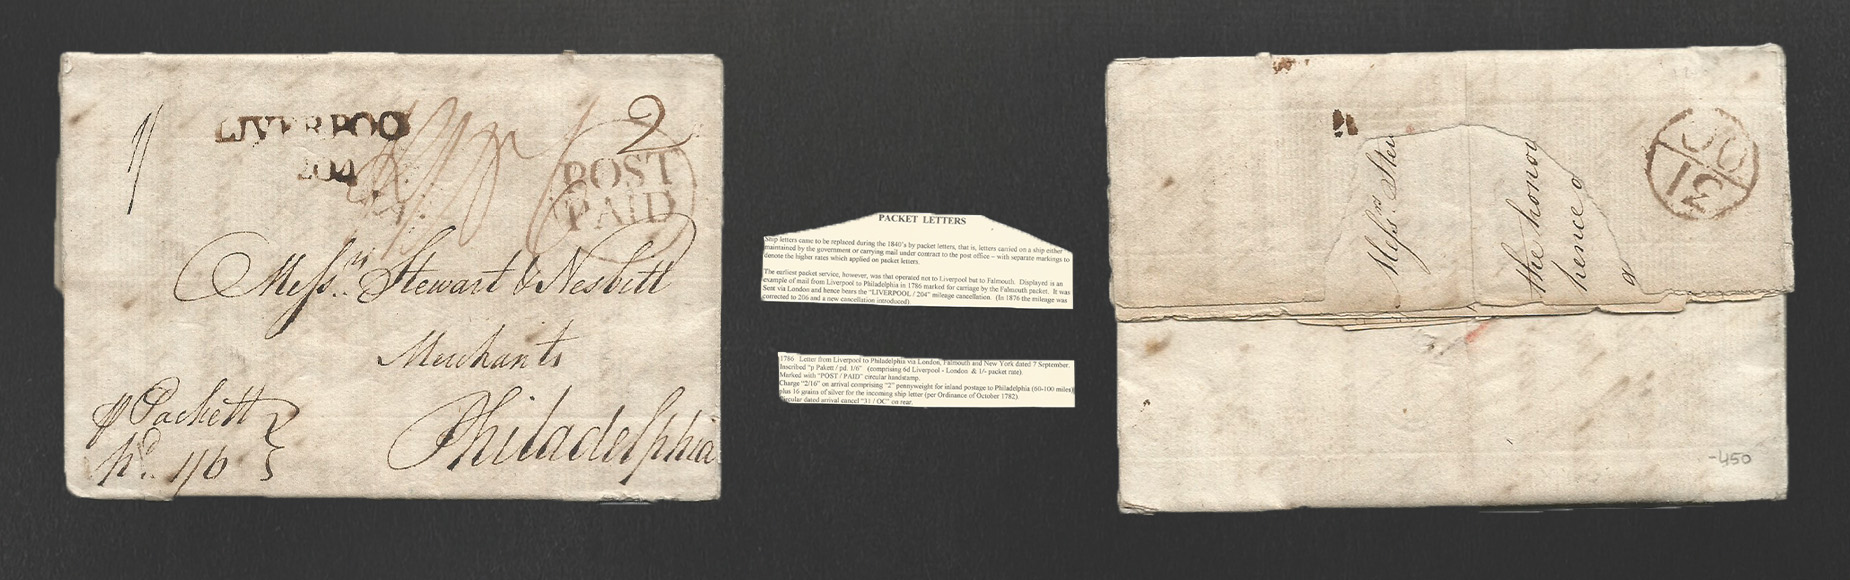 LIVERPOO
204
1/
2
POST
PAID
Messrs. Stewart & Nesbitt
Merchants
Philadelphia
p Packett
pd. 1/6
PACKET LETTERS
Ship letters came to be replaced during the 1840's by packet letters, that is, letters carried on a ship either
maintained by the government or carrying mail under contract to the post office – with separate markings to
denote the higher rates which applied on packet letters.
The earliest packet service, however, was that operated not to Liverpool but to Falmouth. Displayed is an
example of mail from Liverpool to Philadelphia in 1786 marked for carriage by the Falmouth packet. It was
Sent via London and hence bears the "LIVERPOOL / 204" mileage cancellation. (In 1876 the mileage was
corrected to 206 and a new cancellation introduced)
1786 Letter from Liverpool to Philadelphia via London, Falmouth and New York dated 7 September.
Inscribed "p Pakett / pd. 1/6" (comprising 6d Liverpool - London & 1/- packet rate).
Marked with "POST / PAID" circular handstamp.
Charge "2/16" on arrival comprising "2" pennyweight for inland postage to Philadelphia (60-100 miles)
plus 16 grains of silver for the incoming ship letter (per Ordinance of October 1782).
Circular dated arrival cancel "31 / OC" on rear.
Messrs. Stew
the honou
hence
OC
31
-450